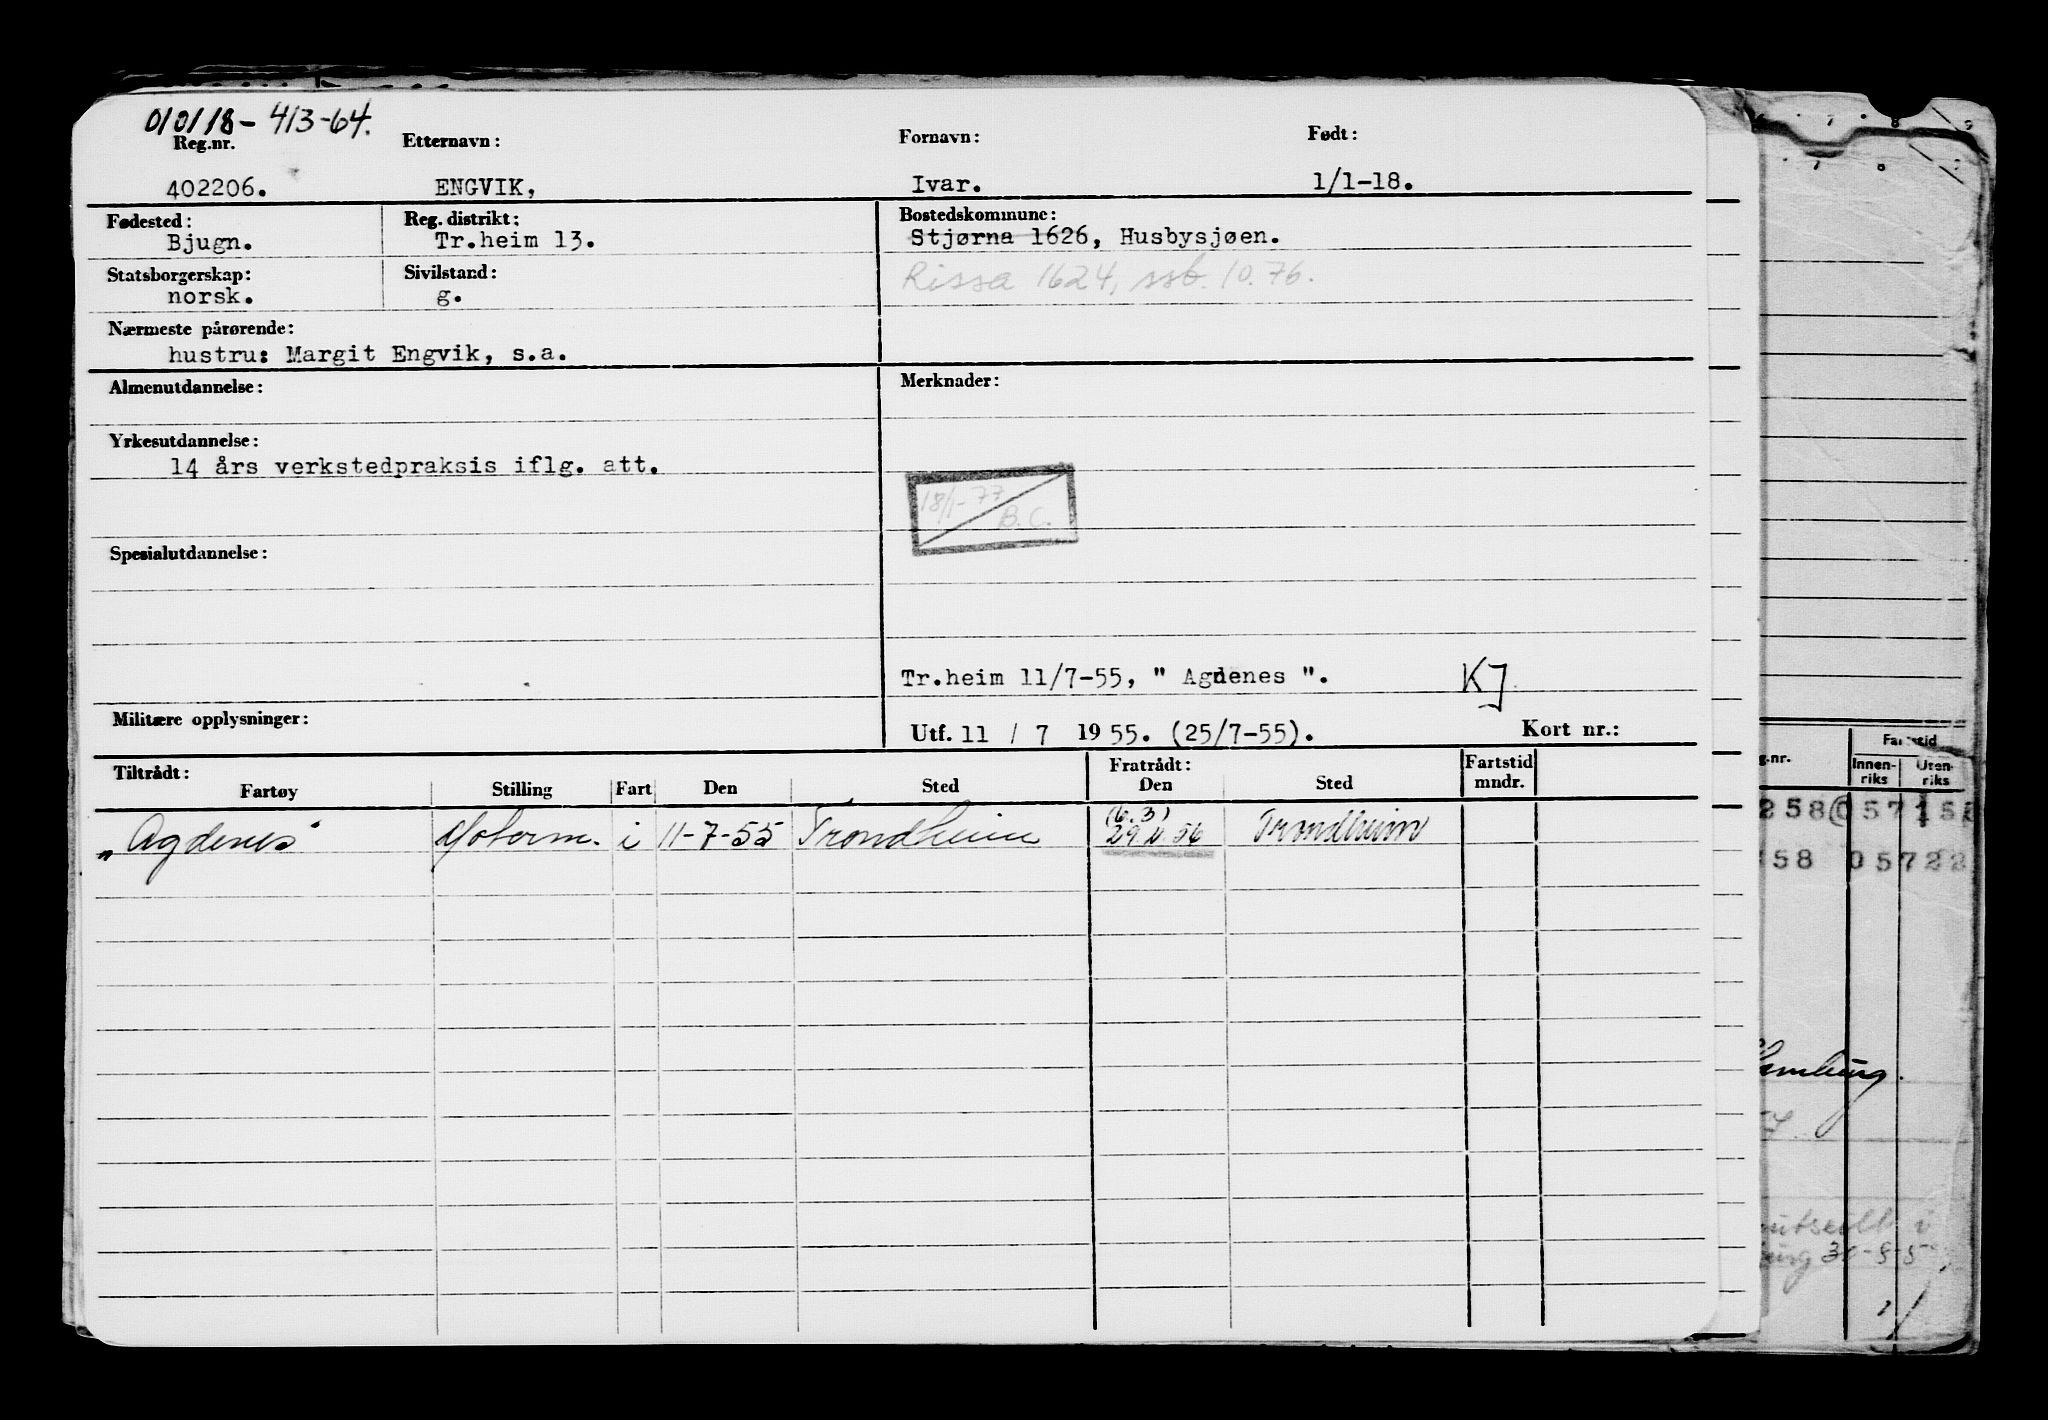 010118-413-64.
Reg.nr. Etternavn: Fornavn: Født:
402206. ENGVIK, Ivar. 1/1-18.
Fødested: Reg. distrikt: Bostedskommune:
Bjugn. Tr.heim 13. Stjørna 1626, Husbysjøen.
Statsborgerskap: Sivilstand:
norsk. g. Rissa 1624, ssb. 10.76.
Nærmeste pårørende:
hustru: Margit Engvik, s.a.
Almenutdannelse: Merknader:
Yrkesutdannelse:
14 års verkstedpraksis iflg. att.
18/1-77
B.C.
Spesialutdannelse:
Tr.heim 11/7-55, " Agdenes ". KJ
Militære opplysninger: Utf. 11 / 7 1955. (25/7-55). Kort nr.:
Tiltrådt: Fratrådt: Fartstid
Fartøy Stilling Fart Den Sted Den Sted mndr.
(6.3)
"Agdenes" Motorm. i 11-7-55 Trondheim 29. 56 Trondheim
g.nr. Innen- Uten-
riks riks
258 057 15
58 05722
7.
i